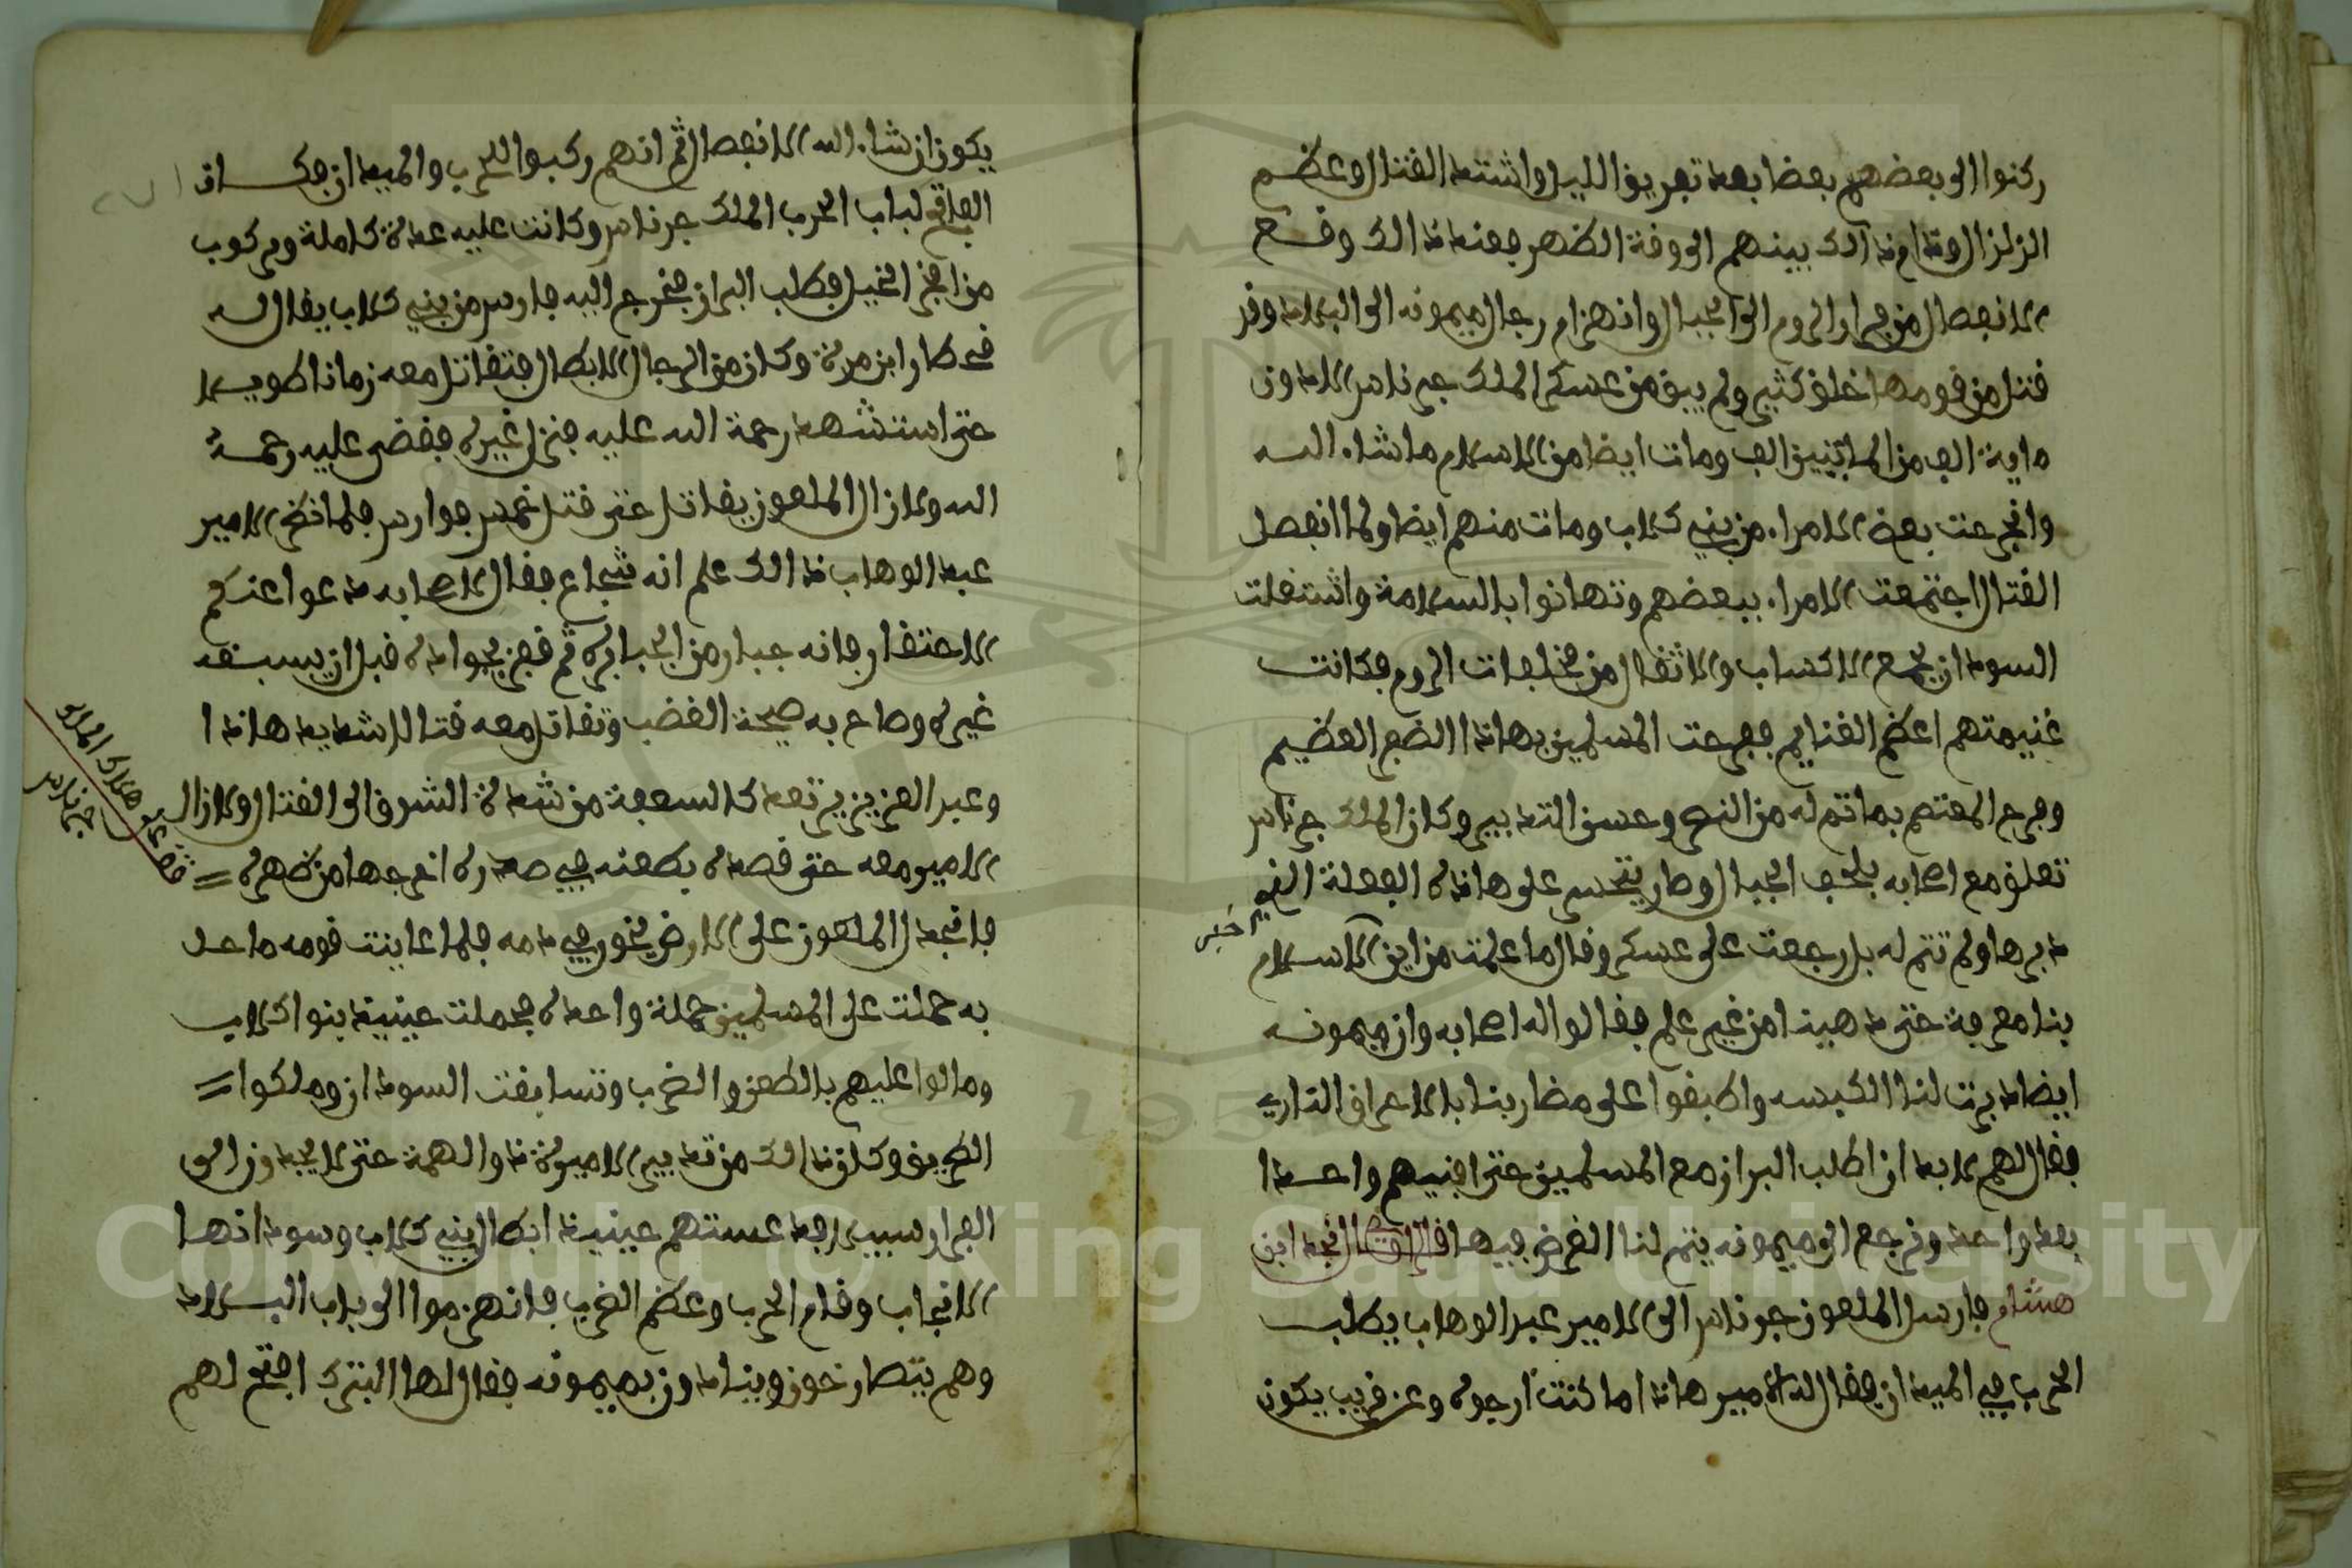 ركنوا الى بعضهم بعضا بعد تعريق الليل واشتد القتال وعظم
الزلزال وقدام ذالك بينهم الى وقة الظهر فعند ذالك وقع
الانفصال من فرار الروم الى الجبال وانهزام رجال ميمونه الى البلاد وقد
قتل من قومها خلق كثير ولم يبق من عسكر الملك جرناس الا دون
ماية الف من الماتيين الف ومات ايضا من الاسلام ماشاء الله
وانجرحت بعض الامراء من بني كلاب ومات منهم ايضا ولما انفصل
القتال اجتمعت الامراء ببعضهم وتهانوا بالسلامة واشتغلت
السودان بجمع الاكساب والاثقال من مخلفات الروم فكانت
غنيمتهم اعظم الغنايم ففرحت المسلمين بهاذا النصر العظيم
وفرح المعتصم بما تم له من النصر وحسن التدبير وكان الملك جرناس
تعلق مع اصحابه بلحف الجبال وصار يتحسر على هاذه الفعلة الذي
دبرها ولم تتم له بل رجعت على عسكره وقال ما علمت من اين الاسلام
خبر
بنا معرفة حتى دهينا من غير علم فقالوا له اصحابه وان ميمونه
ايضا دبرت لنا الكبسه واطبقوا على مضاربنا بالاعراف الداريه
فقال لهم لا بد ان اطلب البراز مع المسلمين حتى افنيهم واحدا
بعد واحد ونرجع الى ميمونه يتم لنا الغرض فيها قال نجد ابن
هشام فارسل الملعون جرناس الى الامير عبد الوهاب يطلب
الحرب في الميدان فقال الامير هاذا ما كنت ارجوه وعن قريب يكون
يكون ان شاء الله الانفصال ثم انهم ركبوا للحرب والميدان فكان
الفاتح لباب الحرب الملك جرناس وكانت عليه عدة كاملة ومركوب
من افخر الخيل فطلب البراز فخرج اليه فارس من بني كلاب يقال له
ابن مرة وكان من الرجال الابطال فتقاتل معه زمانا طويلا
حتى استشهد رحمة الله عليه فنزل غيره فقضى عليه رحمة
الله ولازال الملعون يقاتل حتى قتل خمس فوارس فلما نظر الامير
عبد الوهاب ذالك علم انه شجاع فقال لاصحابه دعوا عنكم
الاحتقار فانه جبار من الجبابره ثم قفز بجواده قبل ان يسبقه
غيره وصاح به صيحة الغضب وتقاتل معه قتالا شديد هاذا
وعبد العزيز يرتعد كالسعفة من شدة الشوق الى القتال ولازال
الامير معه حتى قصده بطعنه في صدره اخرجها من ظهره
فانجدل الملعون على الارض يخور في دمه فلما عاينت قومه ما حل
به حملت على المسلمين حملة واحده فحملت حينيذ بنوا كلاب
ومالوا عليهم بالطعن والضرب وتسابقت السودان وملكوا
الطريق وكان ذالك من تدبير الامير ذو الهمة حتى لا يجدون الى
الفرار سبيلا فدعستهم حينيذ ابطال بني كلاب وسودانها
الانجاب وقام الحرب وعظم الضرب فانهزموا الى باب البلاد
وهم يتصارخون وينادون بميمونه فقال لها البترك افتح لهم
قف على هلاك الملك
جرناس
Copyright © King Saud University
1957